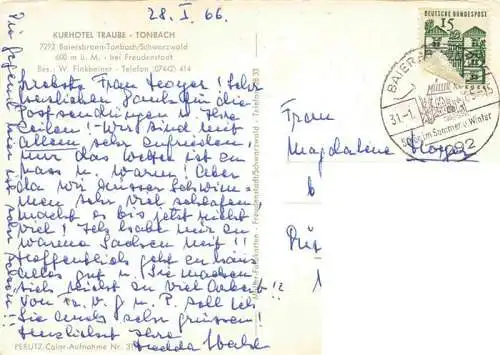 28. I. 66.
KURHOTEL TRAUBE - TONBACH
7292 Baiersbronn-Tonbach/Schwarzwald
600 m ü. M. - bei Freudenstadt
Bes.: W. Finkbeiner - Telefon (07442) 414
Liebste Frau Hoyer! Sehr
herzlichen Dank für die
Postsendungen u. Ihre
Zeilen! Wir sind mit
allem sehr zufrieden,
nur das Wetter ist zu
nass u. warm! Aber
da wir unser Schwim-
men sehr viel schlafen
macht es bis jetzt nicht
viel! Ich habe nur zu
warme Sachen mit!!
Hoffentlich geht es Ihnen
alles gut u. Sie machen
sich nicht zu viel Arbeit!!
Von Fr. v. G. u. P. soll ich
Sie auch sehr grüssen!
Herzlichst Ihre
Hedda
Die Gegend hier ist sehr schön!!
PERUTZ-Color-Aufnahme Nr.
Freudenstadt/Schwarzwald - Telefon
DEUTSCHE BUNDESPOST
15
31.-1.
Schön im Sommer u. Winter
7292
Frau
Magdalene Hoyer
b
1